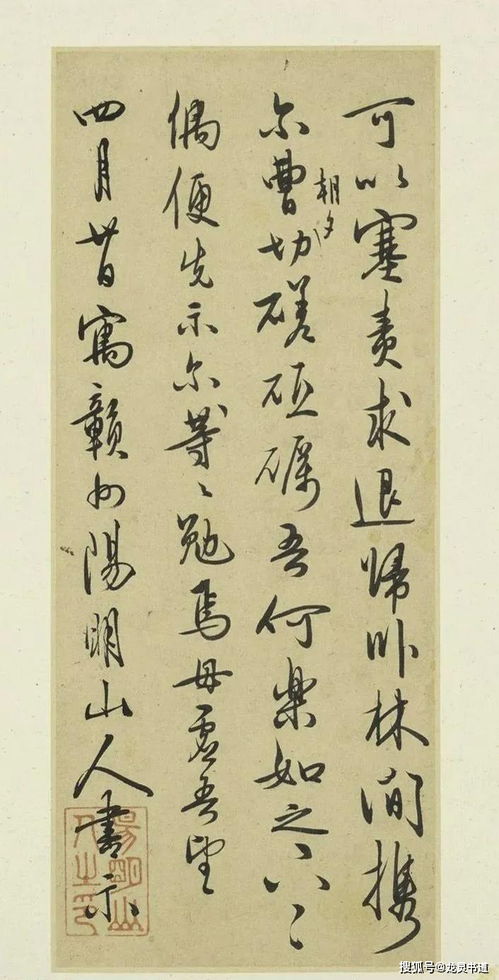 可以塞責求退歸卧林間携
尔曹朝夕切磋砥礪吾何樂如之
偶便先示尔等〻勉焉毋虛吾望
四月卅日寓贛州陽明山人書示
陽明山人之印
搜狐号@龙灵书道